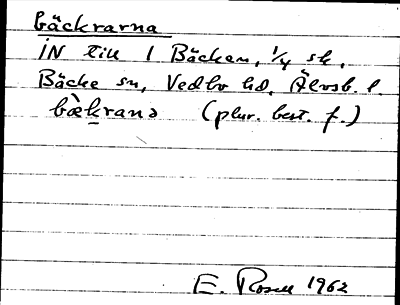 bäckrarna
IN till 1 Bäcken, 1/4 sk,
Bäcke sn, Vedbo hd, Älvsb. l.
bæ̀kranə (plur. best. f.)
E. Rosell 1962